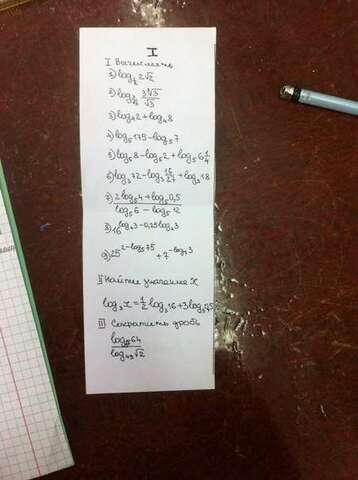 I
I Вычислить
1) log_{1/2} 2√2
2) log_{3/2}
3) log_4 2 + log_4 8
4) log_5 175 - log_5 7
5) log_5 8 - log_5 2 + log_5 6 1/4
6) log_3 72 - log_3 16/27 + log_3 18
7) (2log_5 4 + log_5 0,5)/(log_5 6 - log_5 12)
8) 16^{log_4 3 - 0,25 log_4 3}
9) 25^{2 - log_5 75} + 7^{-log_7 3}
II Найти значение X
log_3 x = 1/2 log_3 16 + 3log_3 0,5
III Сократить дробь
log_5 64
log_{49} √2